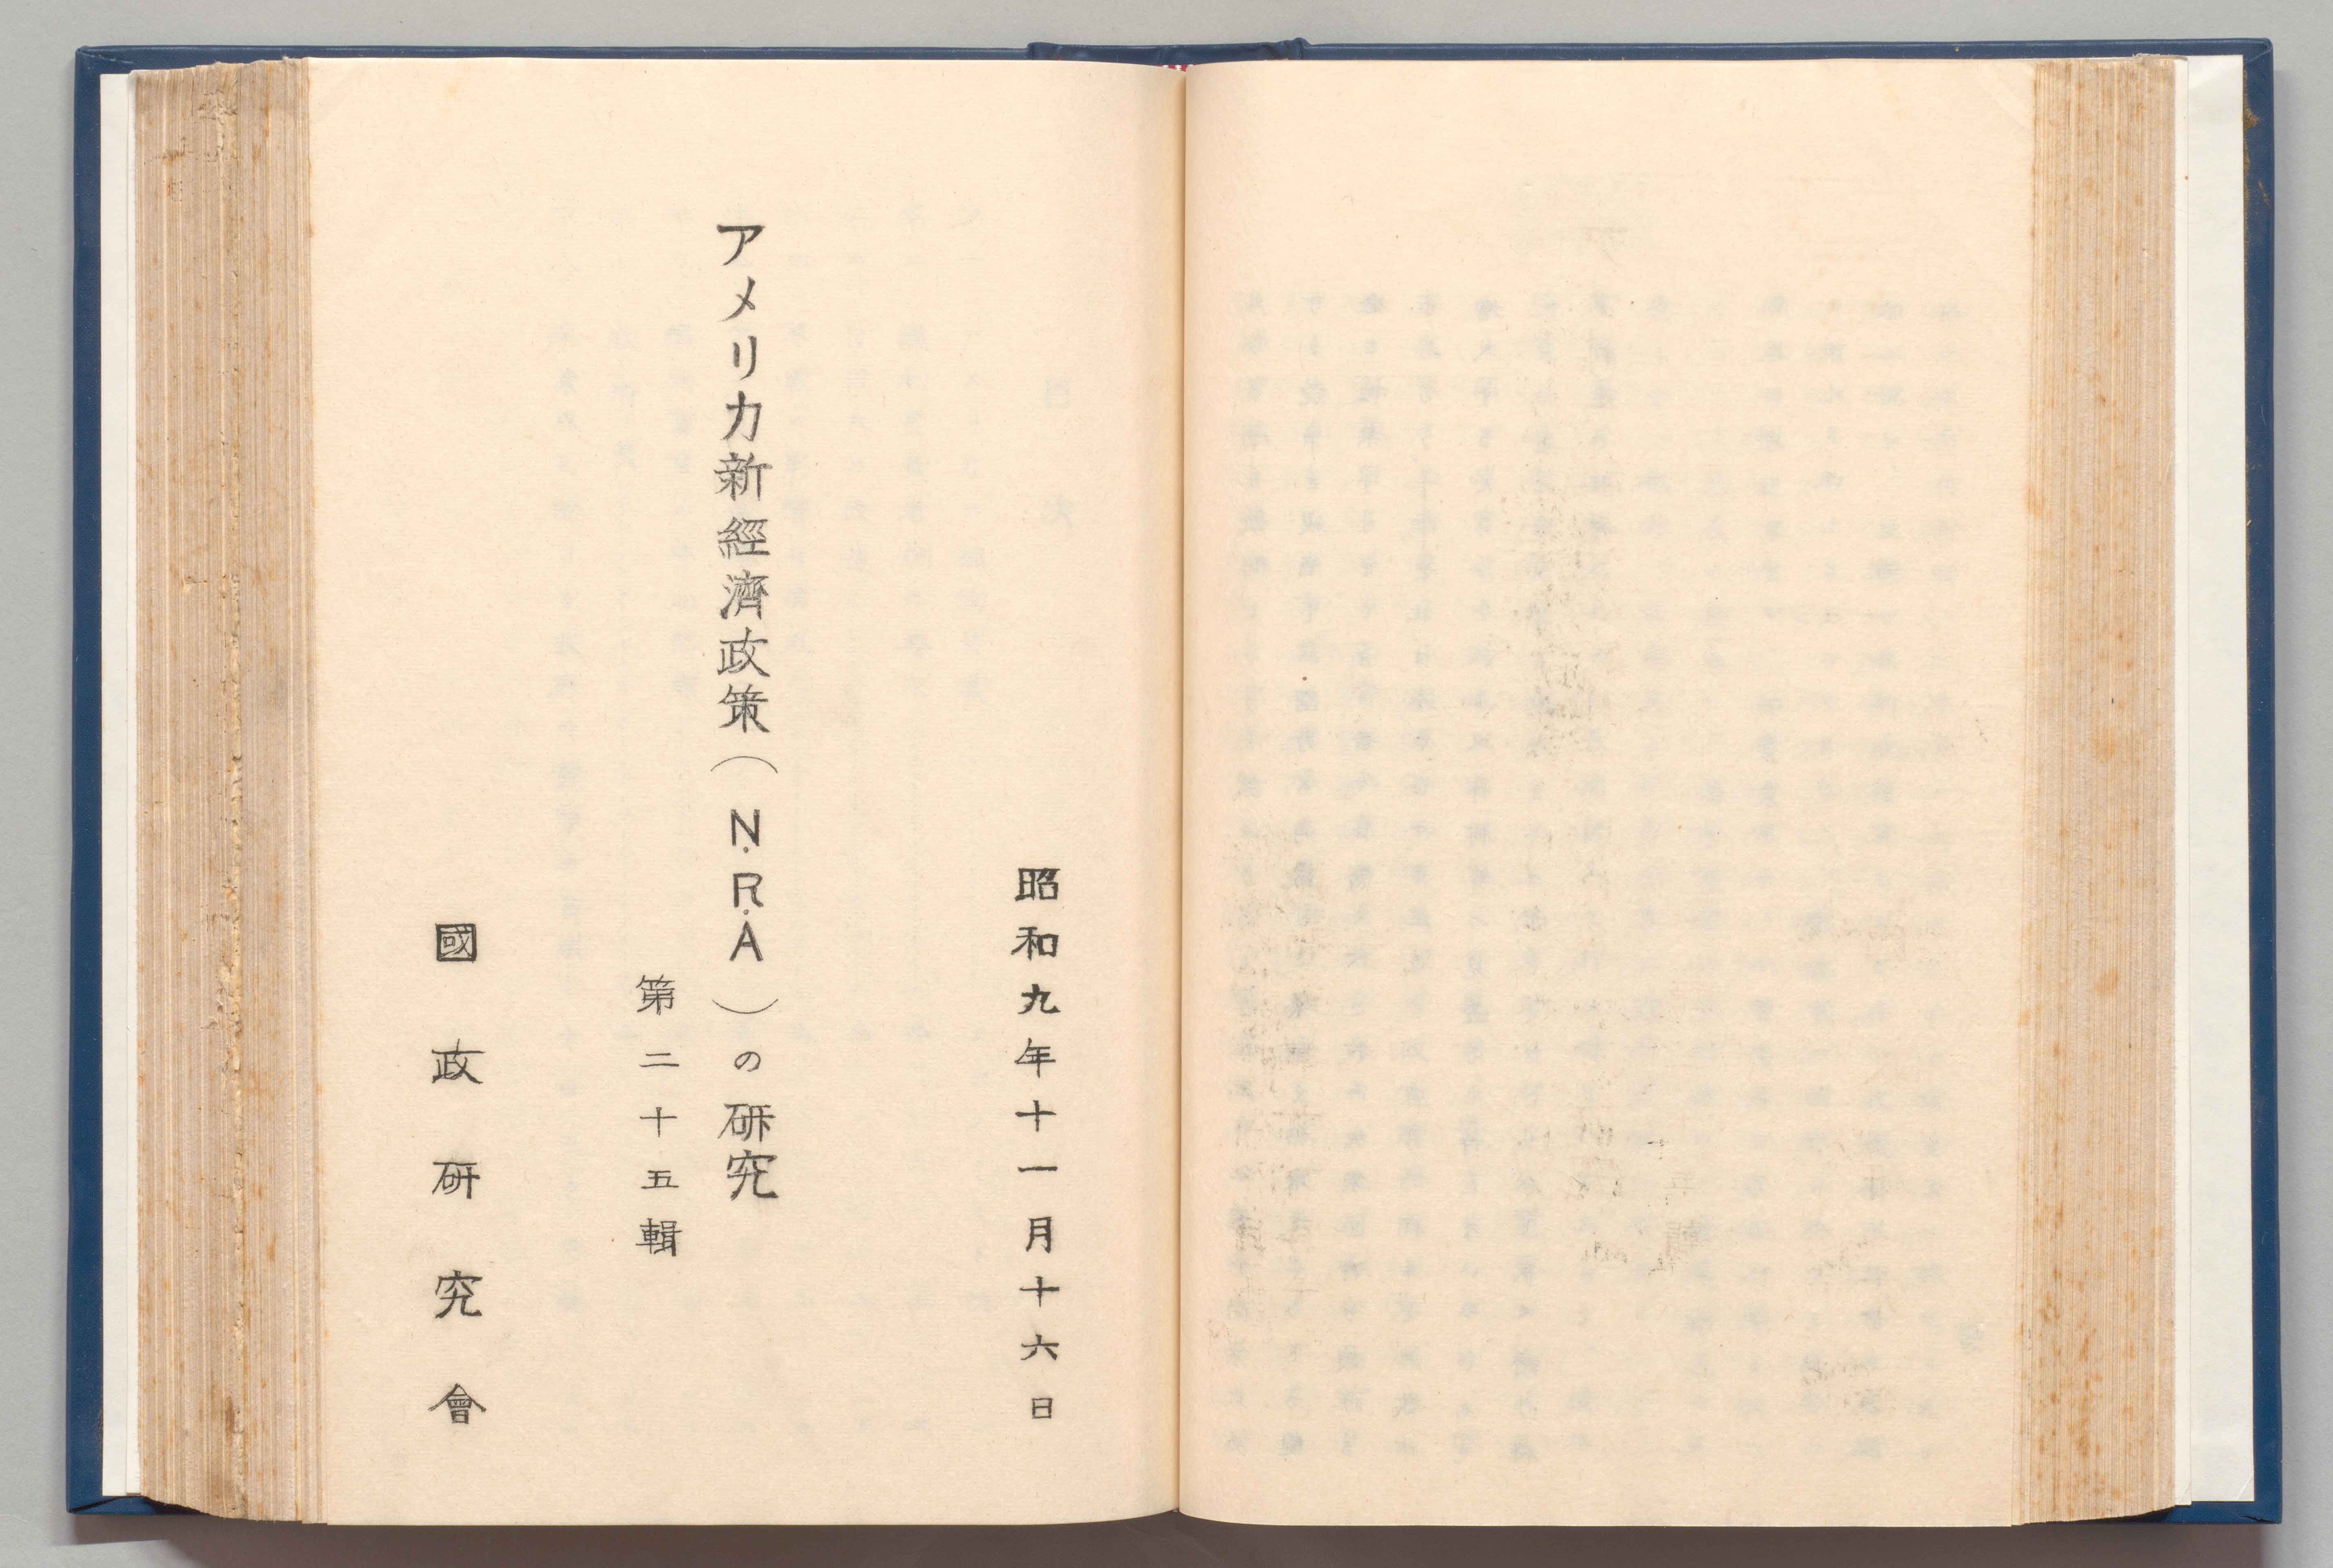 昭和九年十一月十六日
アメリカ新經濟政策（N.R.A）の研究
第二十五輯
國政研究會